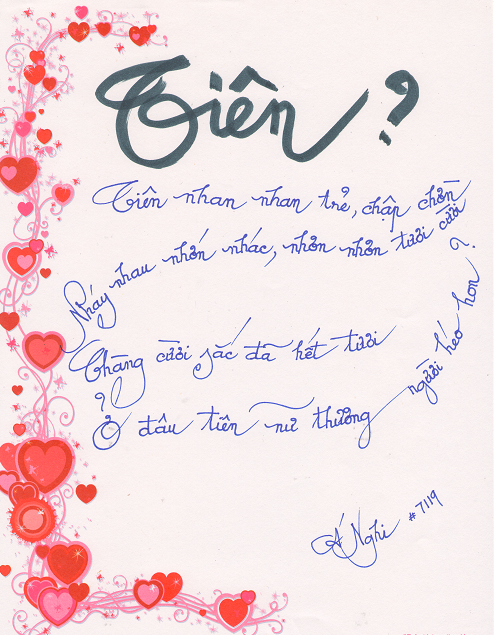 Tiên ?
Tiên nhan nhan trẻ, chập chờn
Nháy nhau nhớn nhác, nhởn nhơn tươi cười
Chàng cười sắc đã hết tươi
Ở đâu tiên nữ thưởng người héo hon ?
Á Nghi #7119